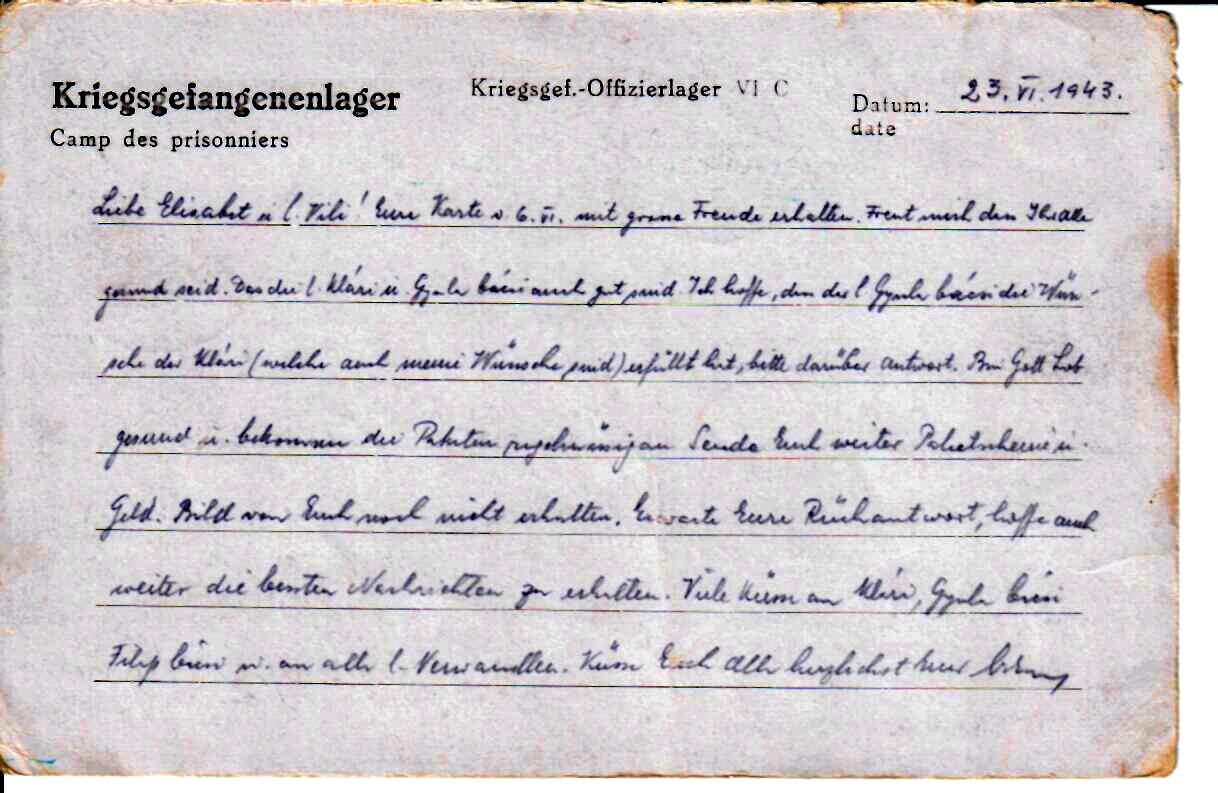 Kriegsgefangenenlager
Kriegsgef.-Offizierlager VI C
Datum: 23. VI. 1943.
Camp des prisonniers
date
Liebe Elisabet u l. Vili! Eure Karte v. 6. VI. mit grosse Freude erhalten. Freut mich dass Ihr alle
gesund seid. Das die l. Klári u. Gyula bácsi auch gut sind. Ich hoffe, dass der l Gyula bácsi die Wün-
sche der Klári (welche auch meine Wünsche sind) erfüllt hat, bitte darüber antwort. Bin Gott Lob
gesund u. bekomme die Paketen regelmässig an Sende Euch weiter Paketscheine u.
Geld. Bild von Euch noch nicht erhalten. Erwarte Eure Rückantwort, hoffe auch
weiter die besten Nachrichten zu erhalten. Viele Küsse an Klári, Gyula bácsi
Filip bácsi u. an alle l. Verwandten. Küsse Euch alle herzlichst Euer